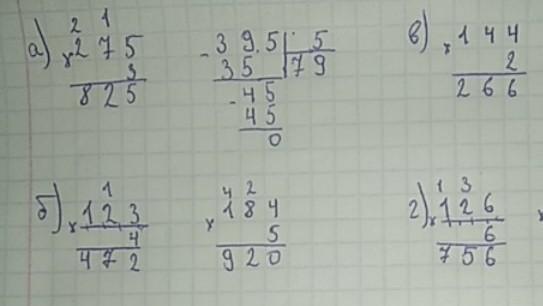 2 1
а) × 275
3
825
- 39.5 | 5
35 79
- 45
45
0
в) × 144
2
266
1
б) × 123
4
472
4 2
× 184
5
920
1 3
г) × 126
6
756
×